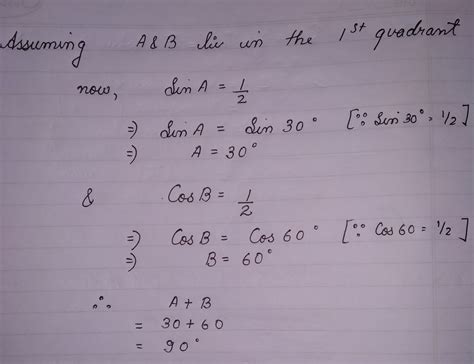 Assuming A & B lie in the 1st quadrant
now, Sin A = 1/2
=) Sin A = Sin 30° [∵ Sin 30° = 1/2]
=) A = 30°
& Cos B = 1/2
=) Cos B = Cos 60° [∵ Cos 60 = 1/2]
=) B = 60°
∴ A + B
= 30 + 60
= 90°